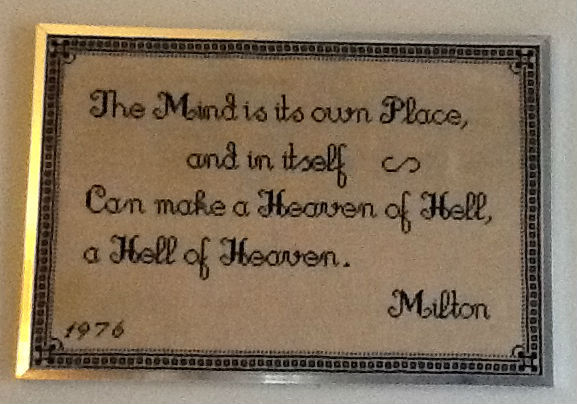 The Mind is its own Place,
and in itself
Can make a Heaven of Hell,
a Hell of Heaven.
Milton
1976